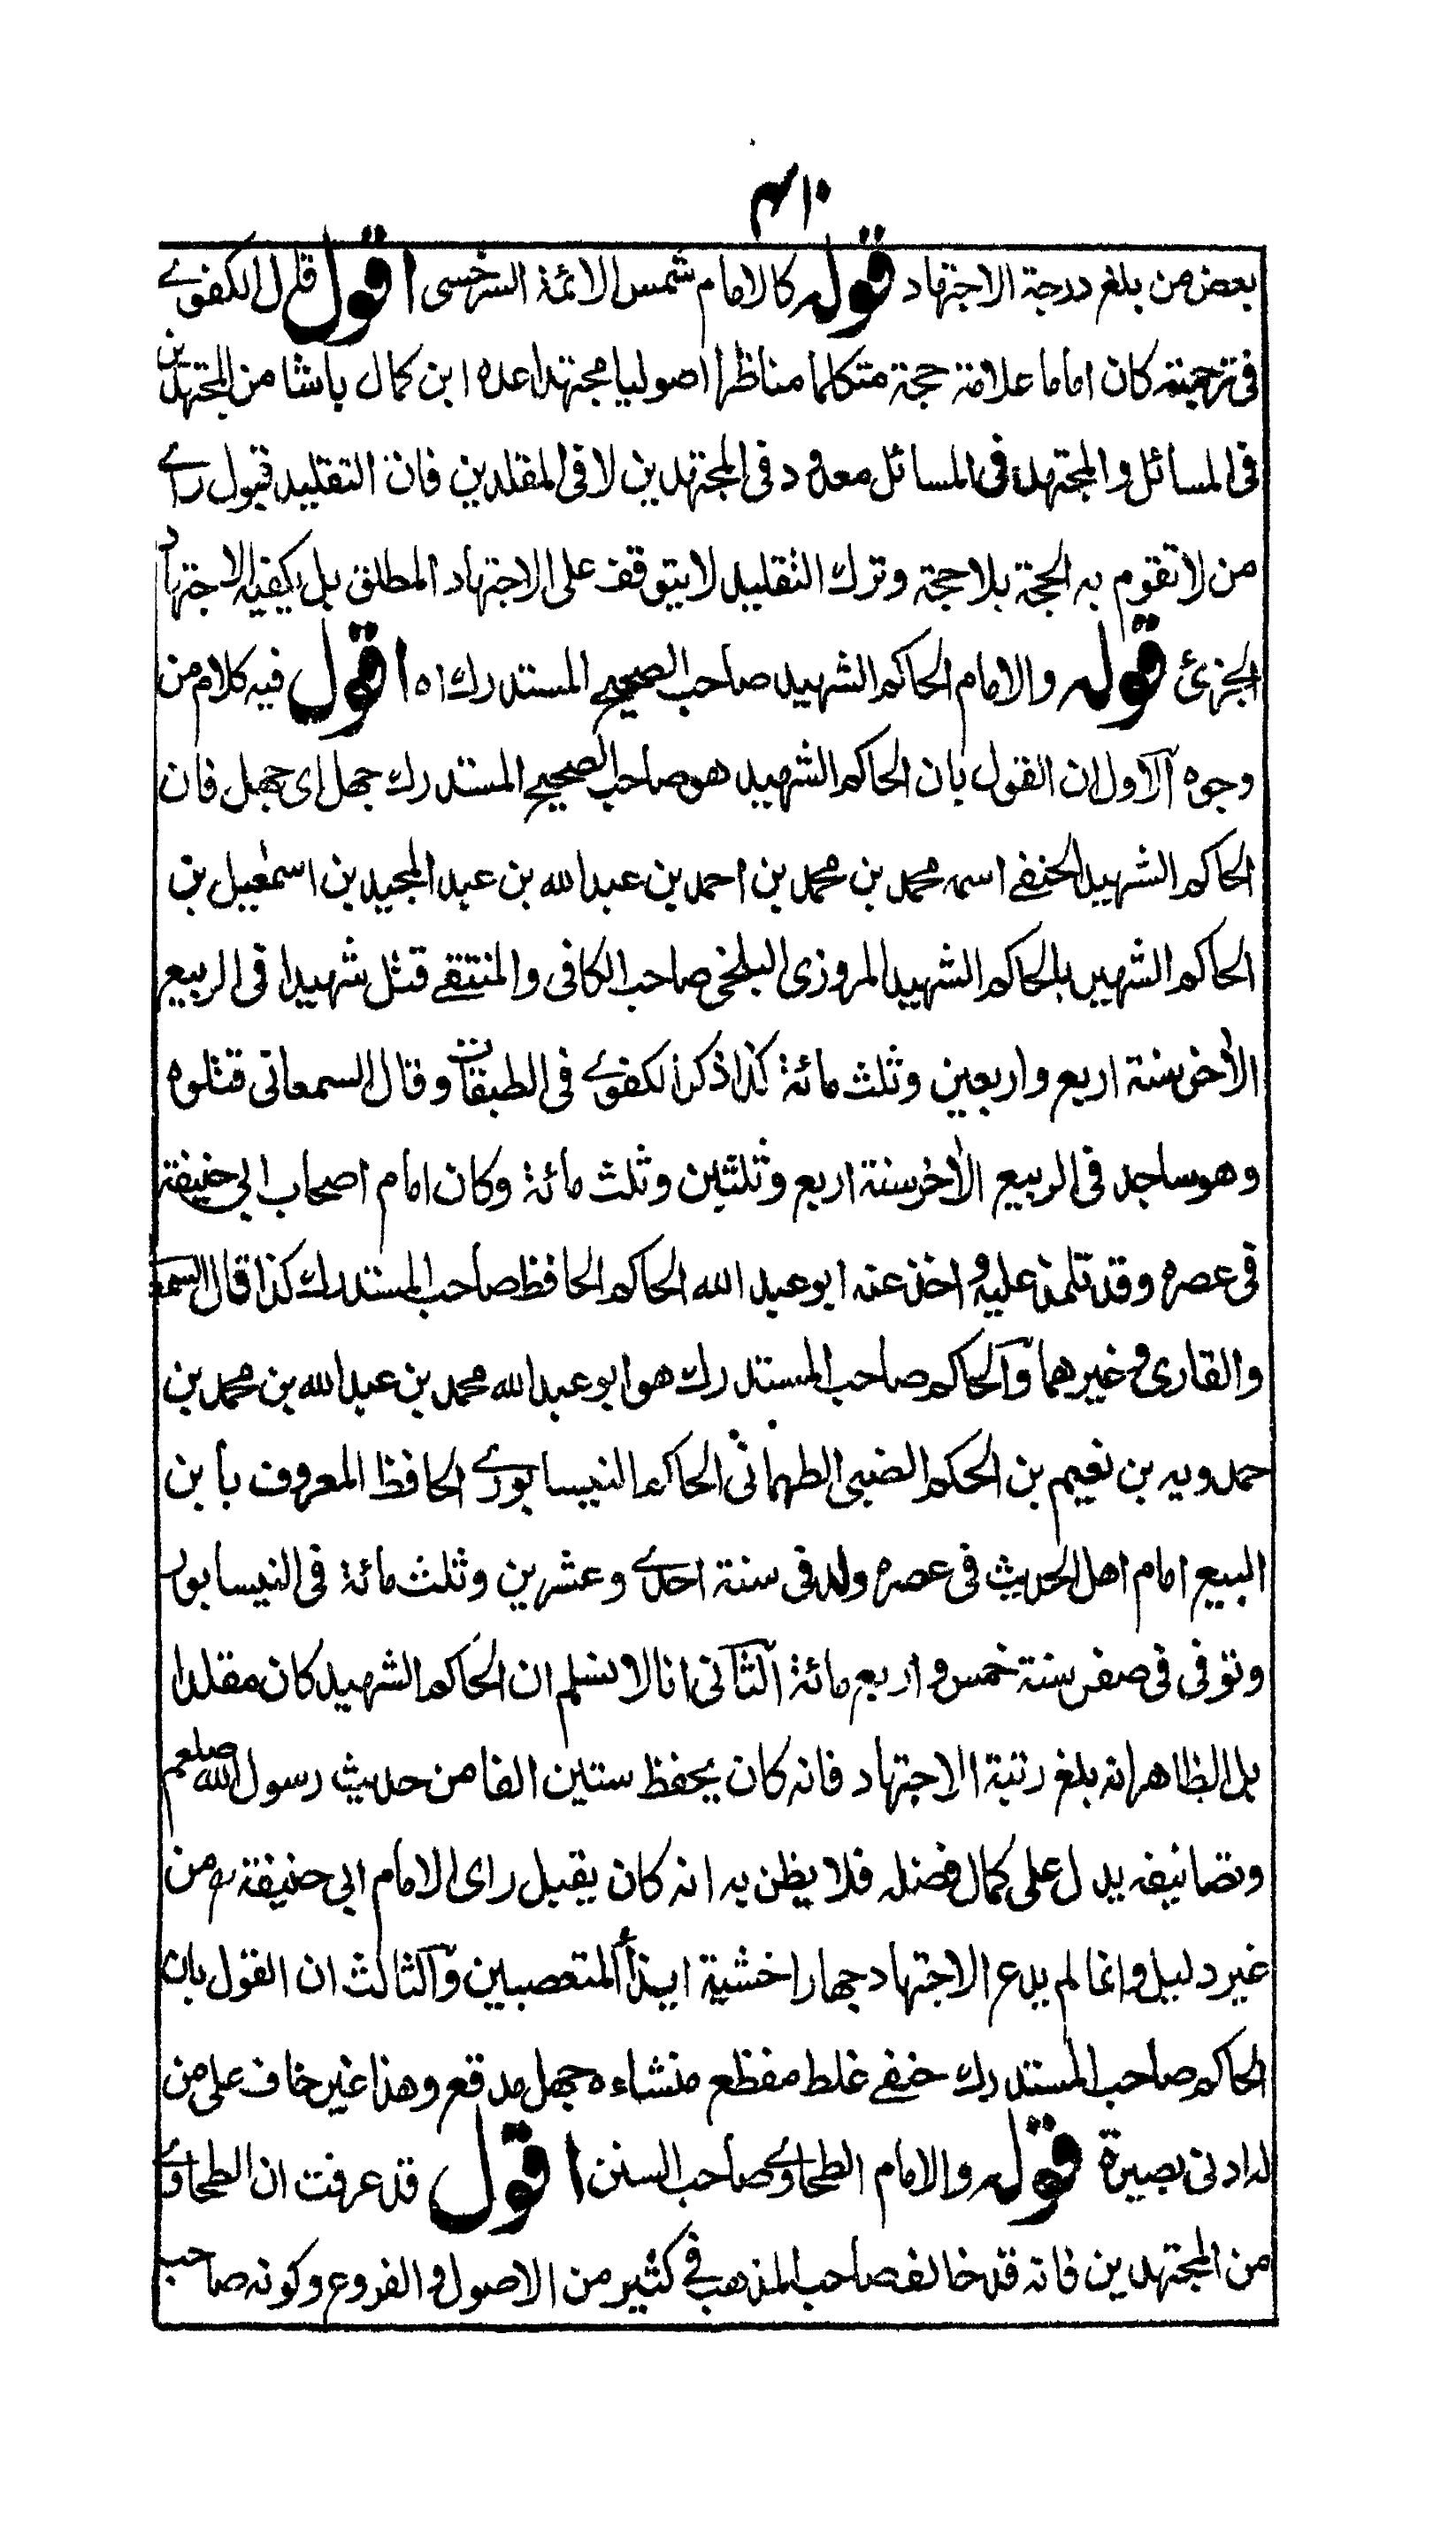 بعض من بلغ درجة الاجتهاد قوله كالامام شمس الائمة السرخسى اقول قال الكفوے
فى ترجمته كان اماما علامة حجة متكلما مناظرا اصوليا مجتهدا عده ابن كمال باشا من المجتهدين
فى المسائل والمجتهد فى المسائل معدود فى المجتهدين لا فى المقلدين فان التقليد قبول راے
من لا تقوم به الحجة بلا حجة وترك التقليد لا يتوقف على الاجتهاد المطلق بل يكفيه الاجتهاد
الجزئ قوله والامام الحاكم الشهيد صاحب الصحيح المستدرك اه اقول فيه كلام من
وجوه آلاول ان القول بان الحاكم الشهيد هو صاحب الصحيح المستدرك جهل اى جهل فان
الحاكم الشهيد الحنفے اسمه محمد بن محمد بن احمد بن عبد الله بن عبد المجيد بن اسمعيل بن
الحاكم الشهير بالحاكم الشهيد المروزى البلخى صاحب الكافى والمنتقے قتل شهيدا فى الربيع
الأخر سنة اربع واربعين وثلث مائة كذا ذكر الكفوے فى الطبقات وقال السمعانى قتلوه
وهو ساجد فى الربيع الأخر سنة اربع وثلثين وثلث مائة وكان امام اصحاب ابى حنيفة
فى عصره وقد تلمذ عليه واخذ عنه ابو عبد الله الحاكم الحافظ صاحب المستدرك كذا قال
والقارى وغيرهما وآلحاكم صاحب المستدرك هو ابو عبد الله محمد بن عبد الله بن محمد بن
حمدويه بن نعيم بن الحكم الضبى الطهمانى الحاكم النيسابورے الحافظ المعروف بابن
البيع امام اهل الحديث فى عصره ولد فى سنة احدے وعشرين وثلث مائة فى النيسابور
وتوفى فى صفر سنة خمس واربع مائة آلثانى انا لا نسلم ان الحاكم الشهيد كان مقلدا
بل الظاهر انه بلغ رتبة الاجتهاد فانه كان يحفظ ستين الفا من حديث رسول الله صلعم
وتصانيفه يدل على كمال فضله فلا يظن به انه كان يقبل راى الامام ابى حنيفة رح من
غير دليل وانما لم يدع الاجتهاد جهارا خشية ايذاء المتعصبين وآلثالث ان القول بان
الحاكم صاحب المستدرك حنفے غلط مفظع منشاءه جهل مدقع وهذا غير خاف على من
له ادنى بصيرة قوله والامام الطحاوے صاحب السنن اقول قد عرفت ان الطحاوے
من المجتهدين فانه قد خالف صاحب المذهب فے كثير من الاصول والفروع وكونه صاحب